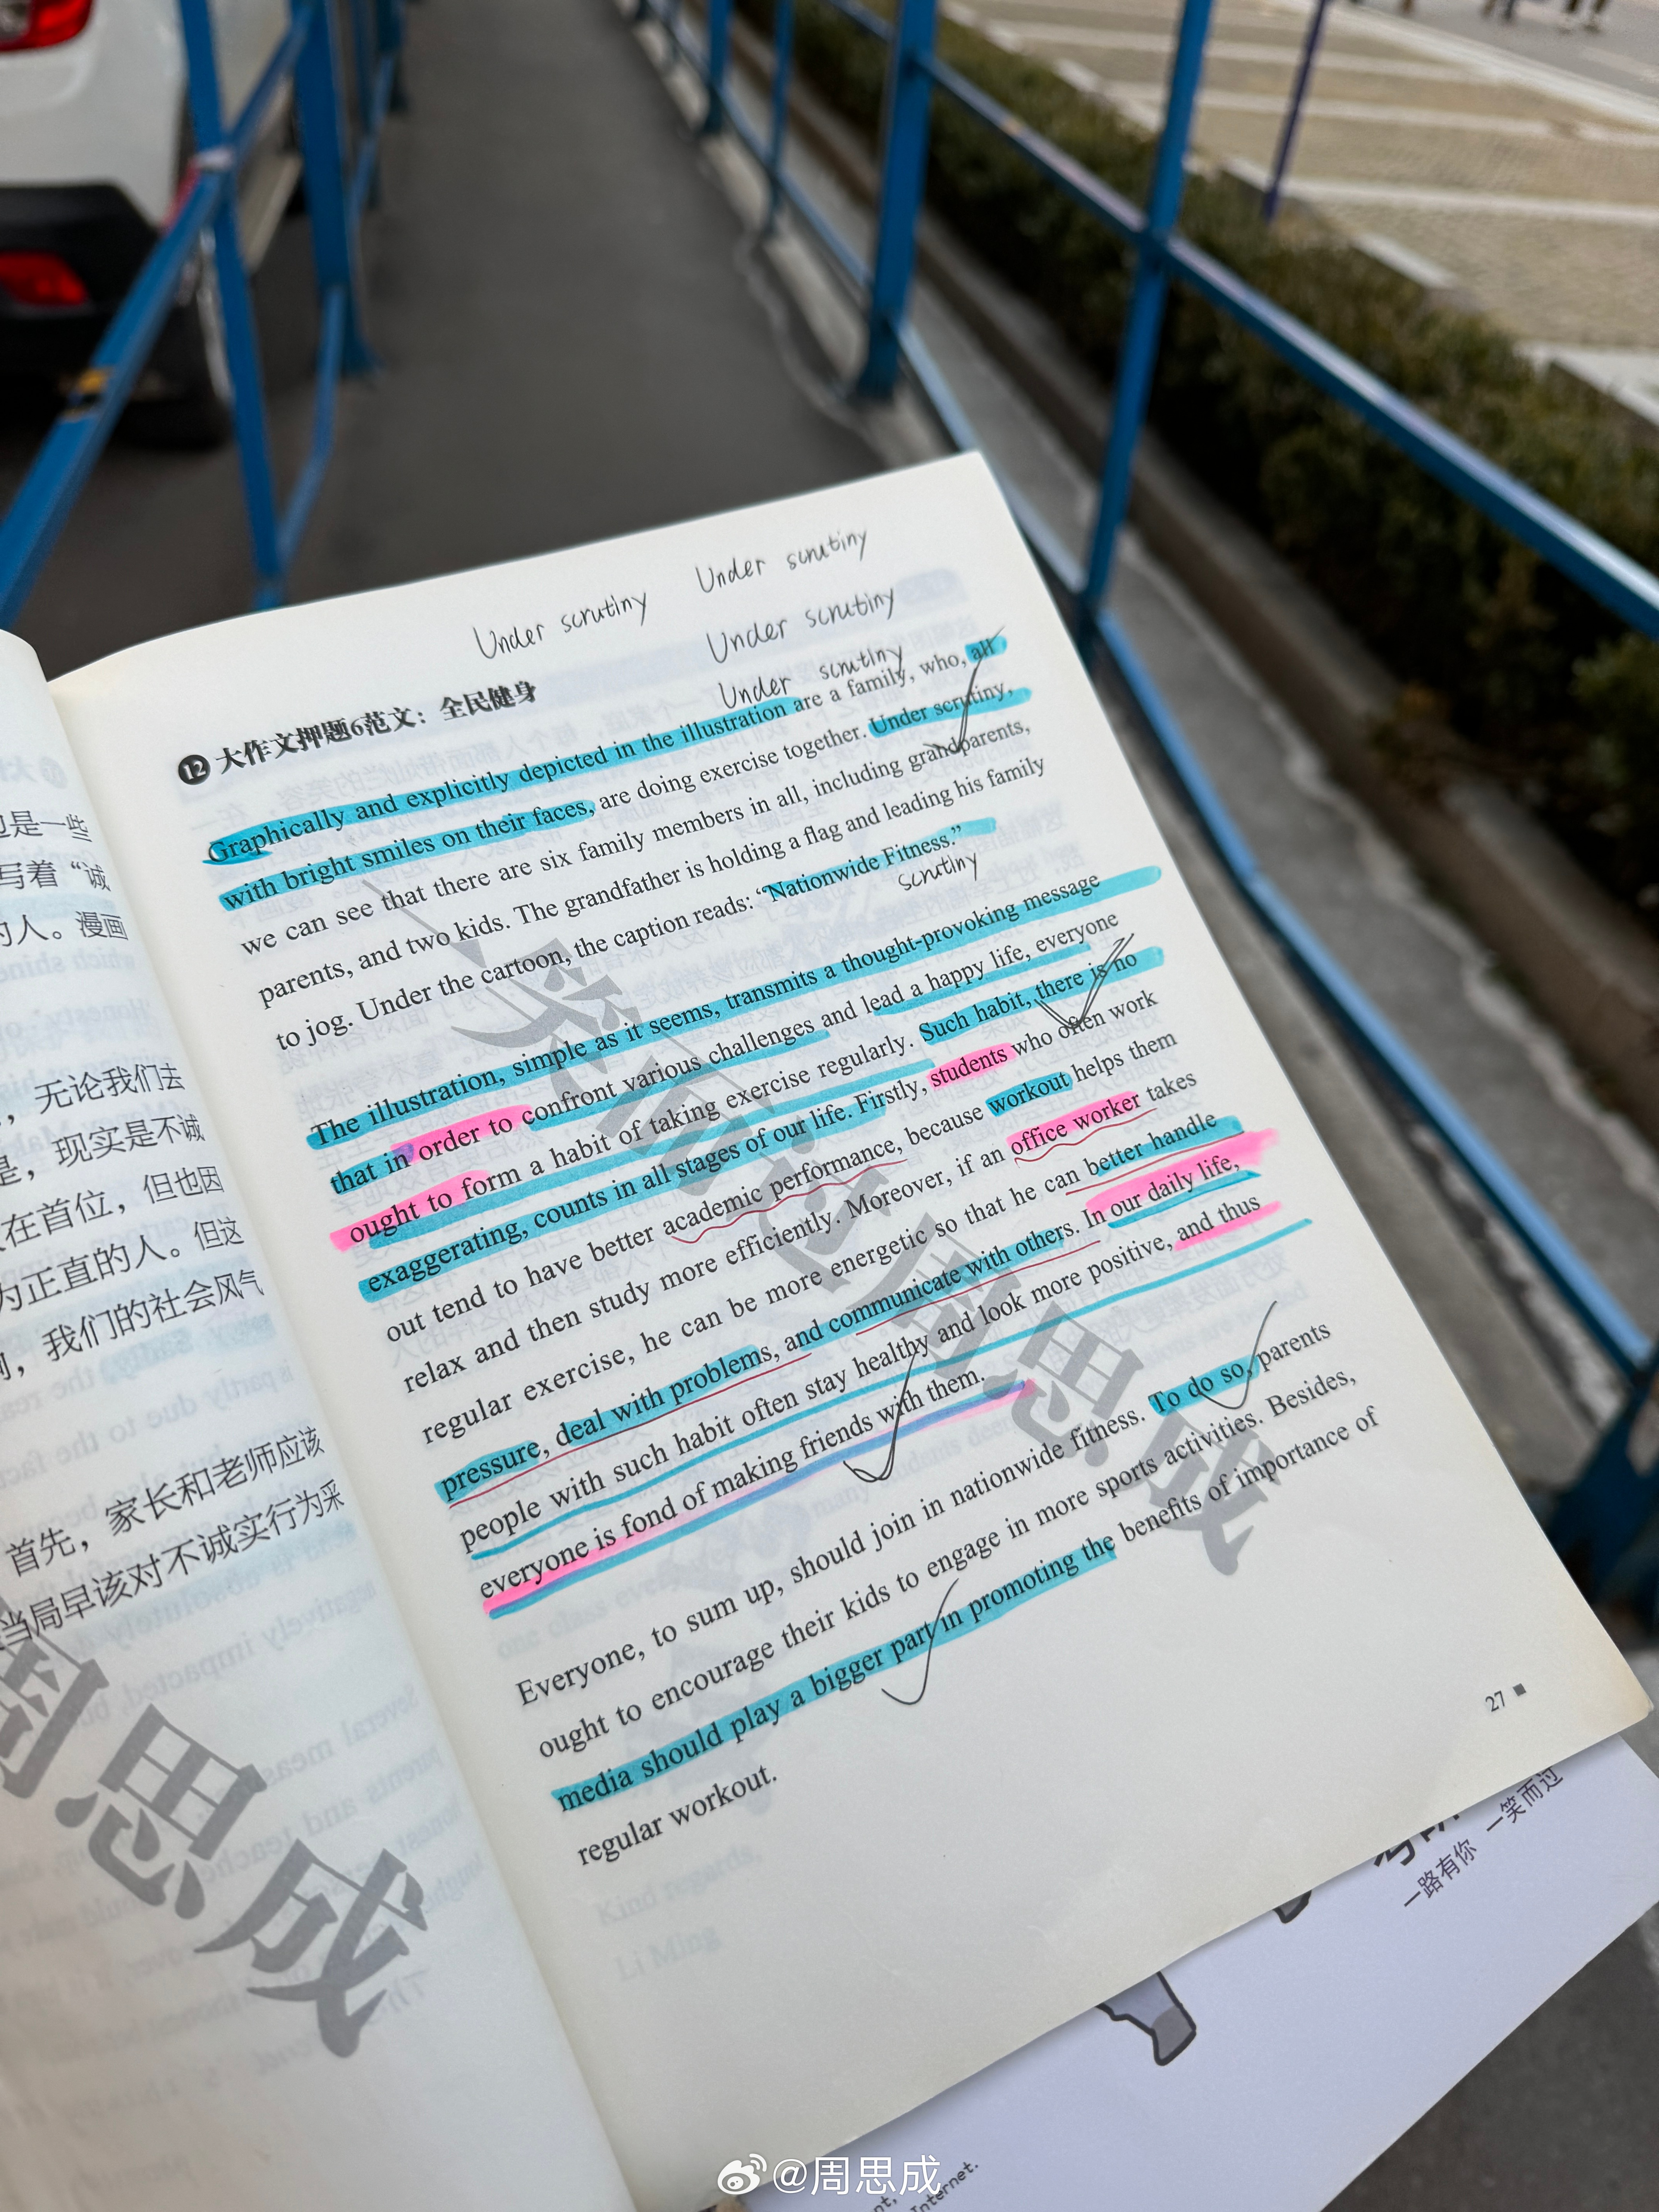 Under scrutiny
Under scrutiny
Under scrutiny
Under scrutiny
⑫ 大作文押题6范文：全民健身
Graphically and explicitly depicted in the illustration are a family, who, all
with bright smiles on their faces, are doing exercise together. Under scrutiny,
we can see that there are six family members in all, including grandparents,
parents, and two kids. The grandfather is holding a flag and leading his family
to jog. Under the cartoon, the caption reads: “Nationwide Fitness.”
scrutiny
The illustration, simple as it seems, transmits a thought-provoking message
that in order to confront various challenges and lead a happy life, everyone
ought to form a habit of taking exercise regularly. Such habit, there is no
exaggerating, counts in all stages of our life. Firstly, students who often work
out tend to have better academic performance, because workout helps them
relax and then study more efficiently. Moreover, if an office worker takes
regular exercise, he can be more energetic so that he can better handle
pressure, deal with problems, and communicate with others. In our daily life,
people with such habit often stay healthy and look more positive, and thus
everyone is fond of making friends with them.
Everyone, to sum up, should join in nationwide fitness. To do so, parents
ought to encourage their kids to engage in more sports activities. Besides,
media should play a bigger part in promoting the benefits of importance of
regular workout.
27
一笑而过周思成
也是一些
写着“诚
的人。漫画
，无论我们去
是，现实是不诚
在首位，但也因
为正直的人。但这
，我们的社会风气
首先，家长和老师应该
当局早该对不诚实行为采
周思成
Kind regards,
Li Ming
一路有你 一笑而过
Internet.
@周思成